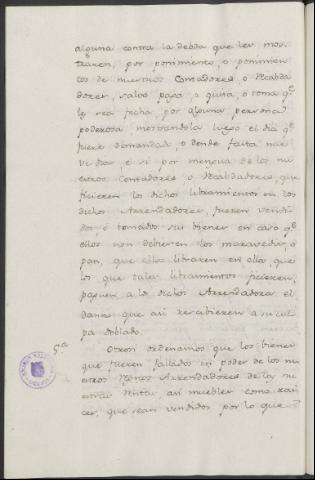 alguna contra la debda que les mos-
traren, por ponimento, o ponimien-
tos de nuestros Contadores, o Recabda-
dores, salvo paga, o quita, o toma qe.
le sea fecha, por alguna persona
poderosa mostrandola luego el dia qe.
fuere demandado, o donde faita nue-
ve dias, e si por mengua de los nu-
estros Contadores, o Recabdadores, que
ficieren los dichos libramientos en los
dichos Arrendadores, fueren vendi-
dos, o tomados sus bienes en caso qe.
ellos non debieren los maravedis, o
pan, que ellos libraren en ellos, que
los que tales libramientos ficieren,
paguen a los dichos Arrendadores el
danno que asi rescibieren a su cul-
pa doblado.
5.a Otrosi ordenamos que los bienes
que fueren fallados en poder de los nu-
estros Arrendadores de las nu-
estras Rentas, asi muebles como rai-
ces, que sean vendidos por lo que